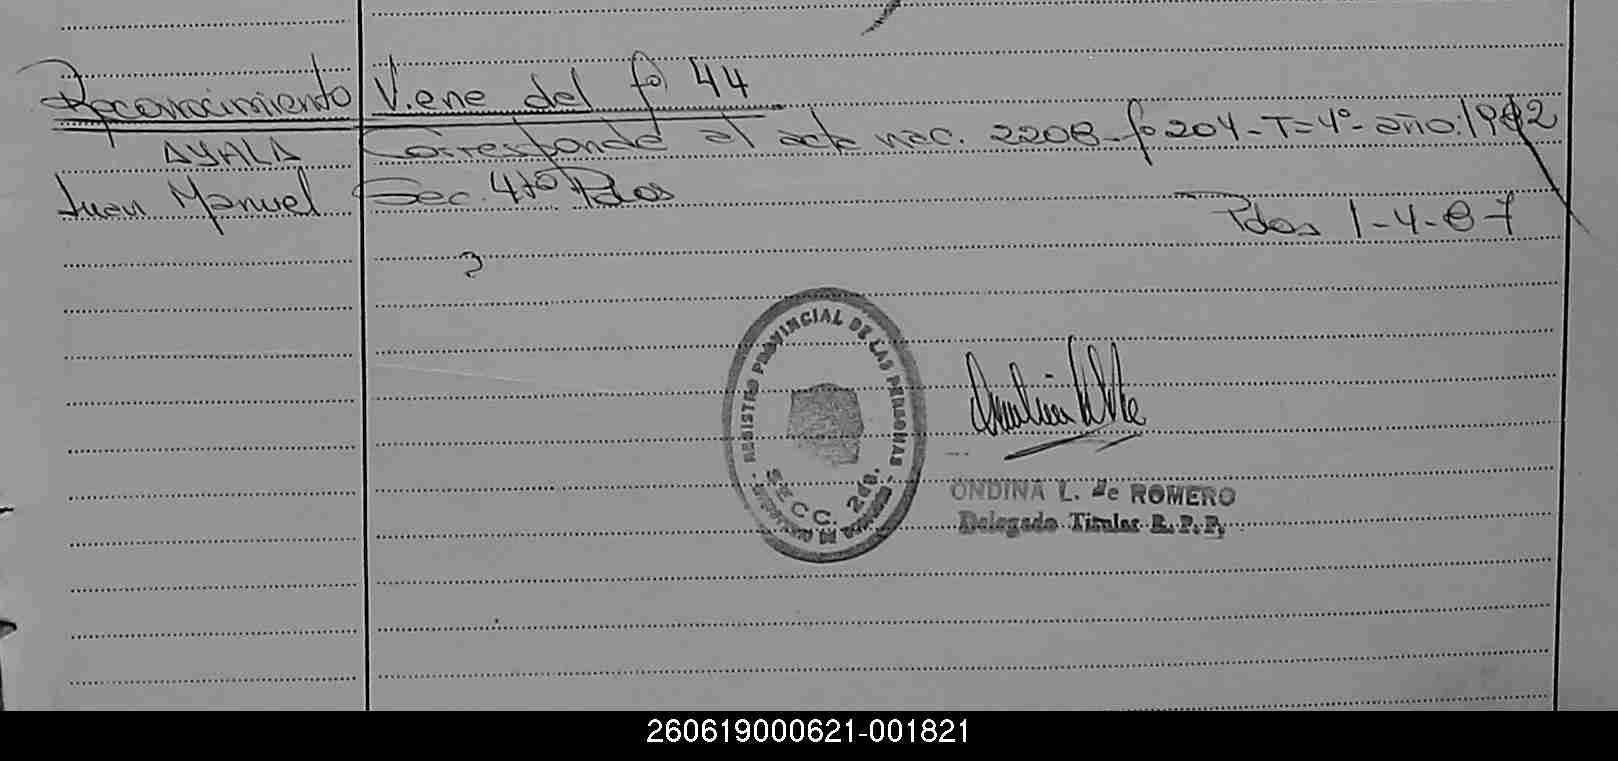 Reconocimiento Viene del fº 44
AYALA Corresponde al acta nac. 2208 - fº 204 - T= 4º - año 1982
Juan Manuel Sec. 4ta Pdas
Pdas 1-4-87
REGISTRO PROVINCIAL DE LAS PERSONAS
SECC. 2da.
ONDINA L. de ROMERO
Delegado Titular R. P. P.
260619000621-001821